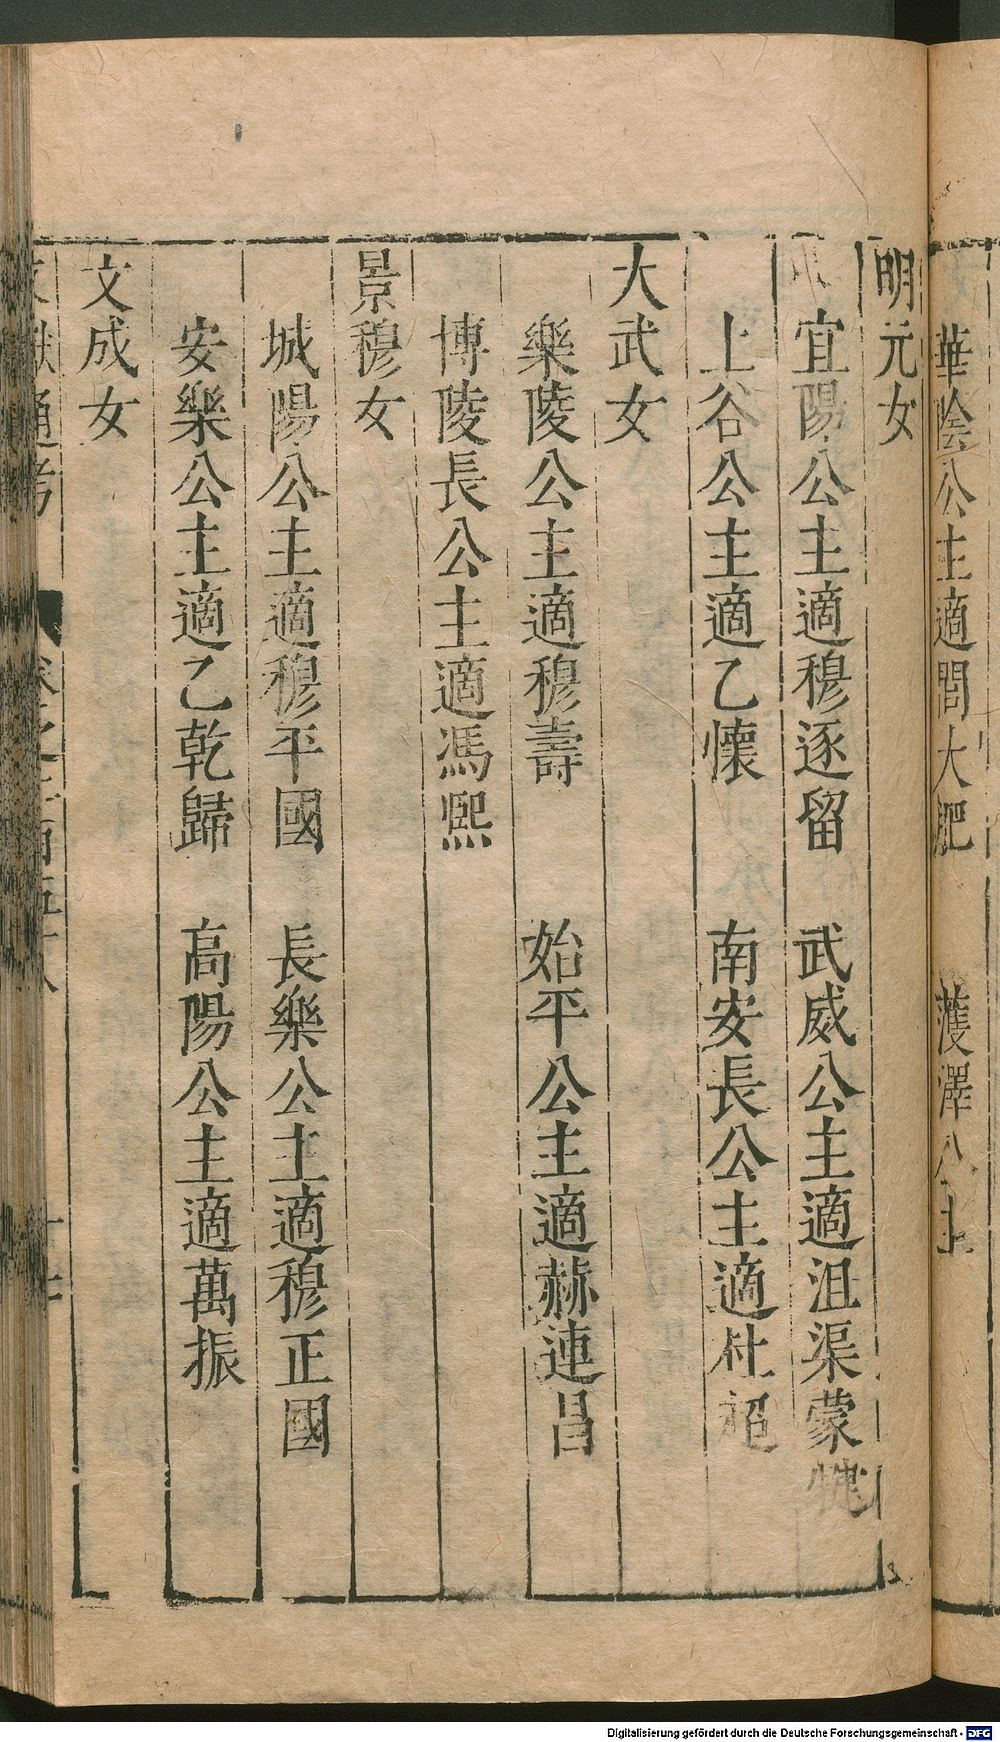 華陰公主適閭大肥　　濩澤公主
明元女
宜陽公主適穆逐留　武威公主適沮渠蒙
上谷公主適乙懷　　南安長公主適杜超
大武女
樂陵公主適穆壽　　始平公主適赫連昌
博陵長公主適馮熙
景穆女
城陽公主適穆平國　長樂公主適穆正國
安樂公主適乙乾歸　高陽公主適萬振
文成女
文獻通考　卷之二百五十八　十七
Digitalisierung gefördert durch die Deutsche Forschungsgemeinschaft - DFG